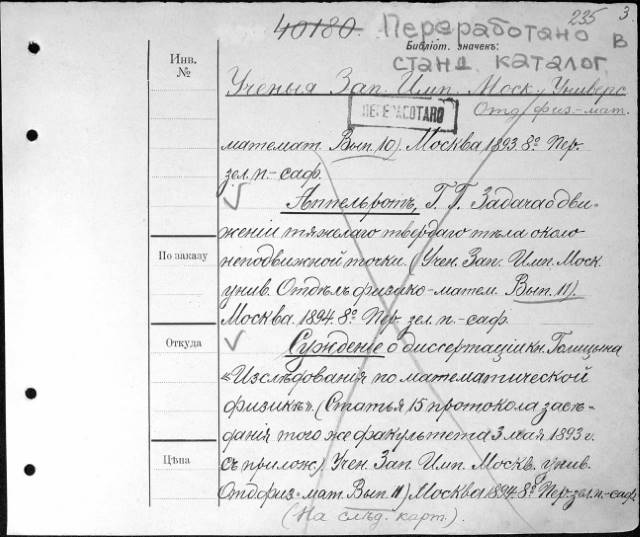 235 3
40180. Переработано
Библіот. значекъ: в
станд. каталог
Инв.
№
Ученыя Зап. Имп. Моск. Универс
Отд. физ-мат.
ПЕРЕРАБОТАНО
математ. Вып. 10). Москва 1893. 8º. Пер.
зел. п.-саф.
Аппельротъ, Г. Г. Задача о дви-
женіи тяжелаго твердаго тѣла около
По заказу
неподвижной точки. (Учен. Зап. Имп. Моск.
унив. Отдѣлъ физико-матем. Вып. 11).
Москва 1894. 8º. Пер. зел. п.-саф.
Откуда
Сужденіе о диссертаціи кн. Голицына
«Изслѣдованія по математической
физикѣ». (Статья 15 протокола засѣ-
данія того же факультета 3 мая 1893 г.
Цѣна
съ прилож.) Учен. Зап. Имп. Москв. унив.
Отд. физ-мат. Вып. 11) Москва 1894. 8º. Пер. зел. п.-саф.
(На слѣд. карт.).